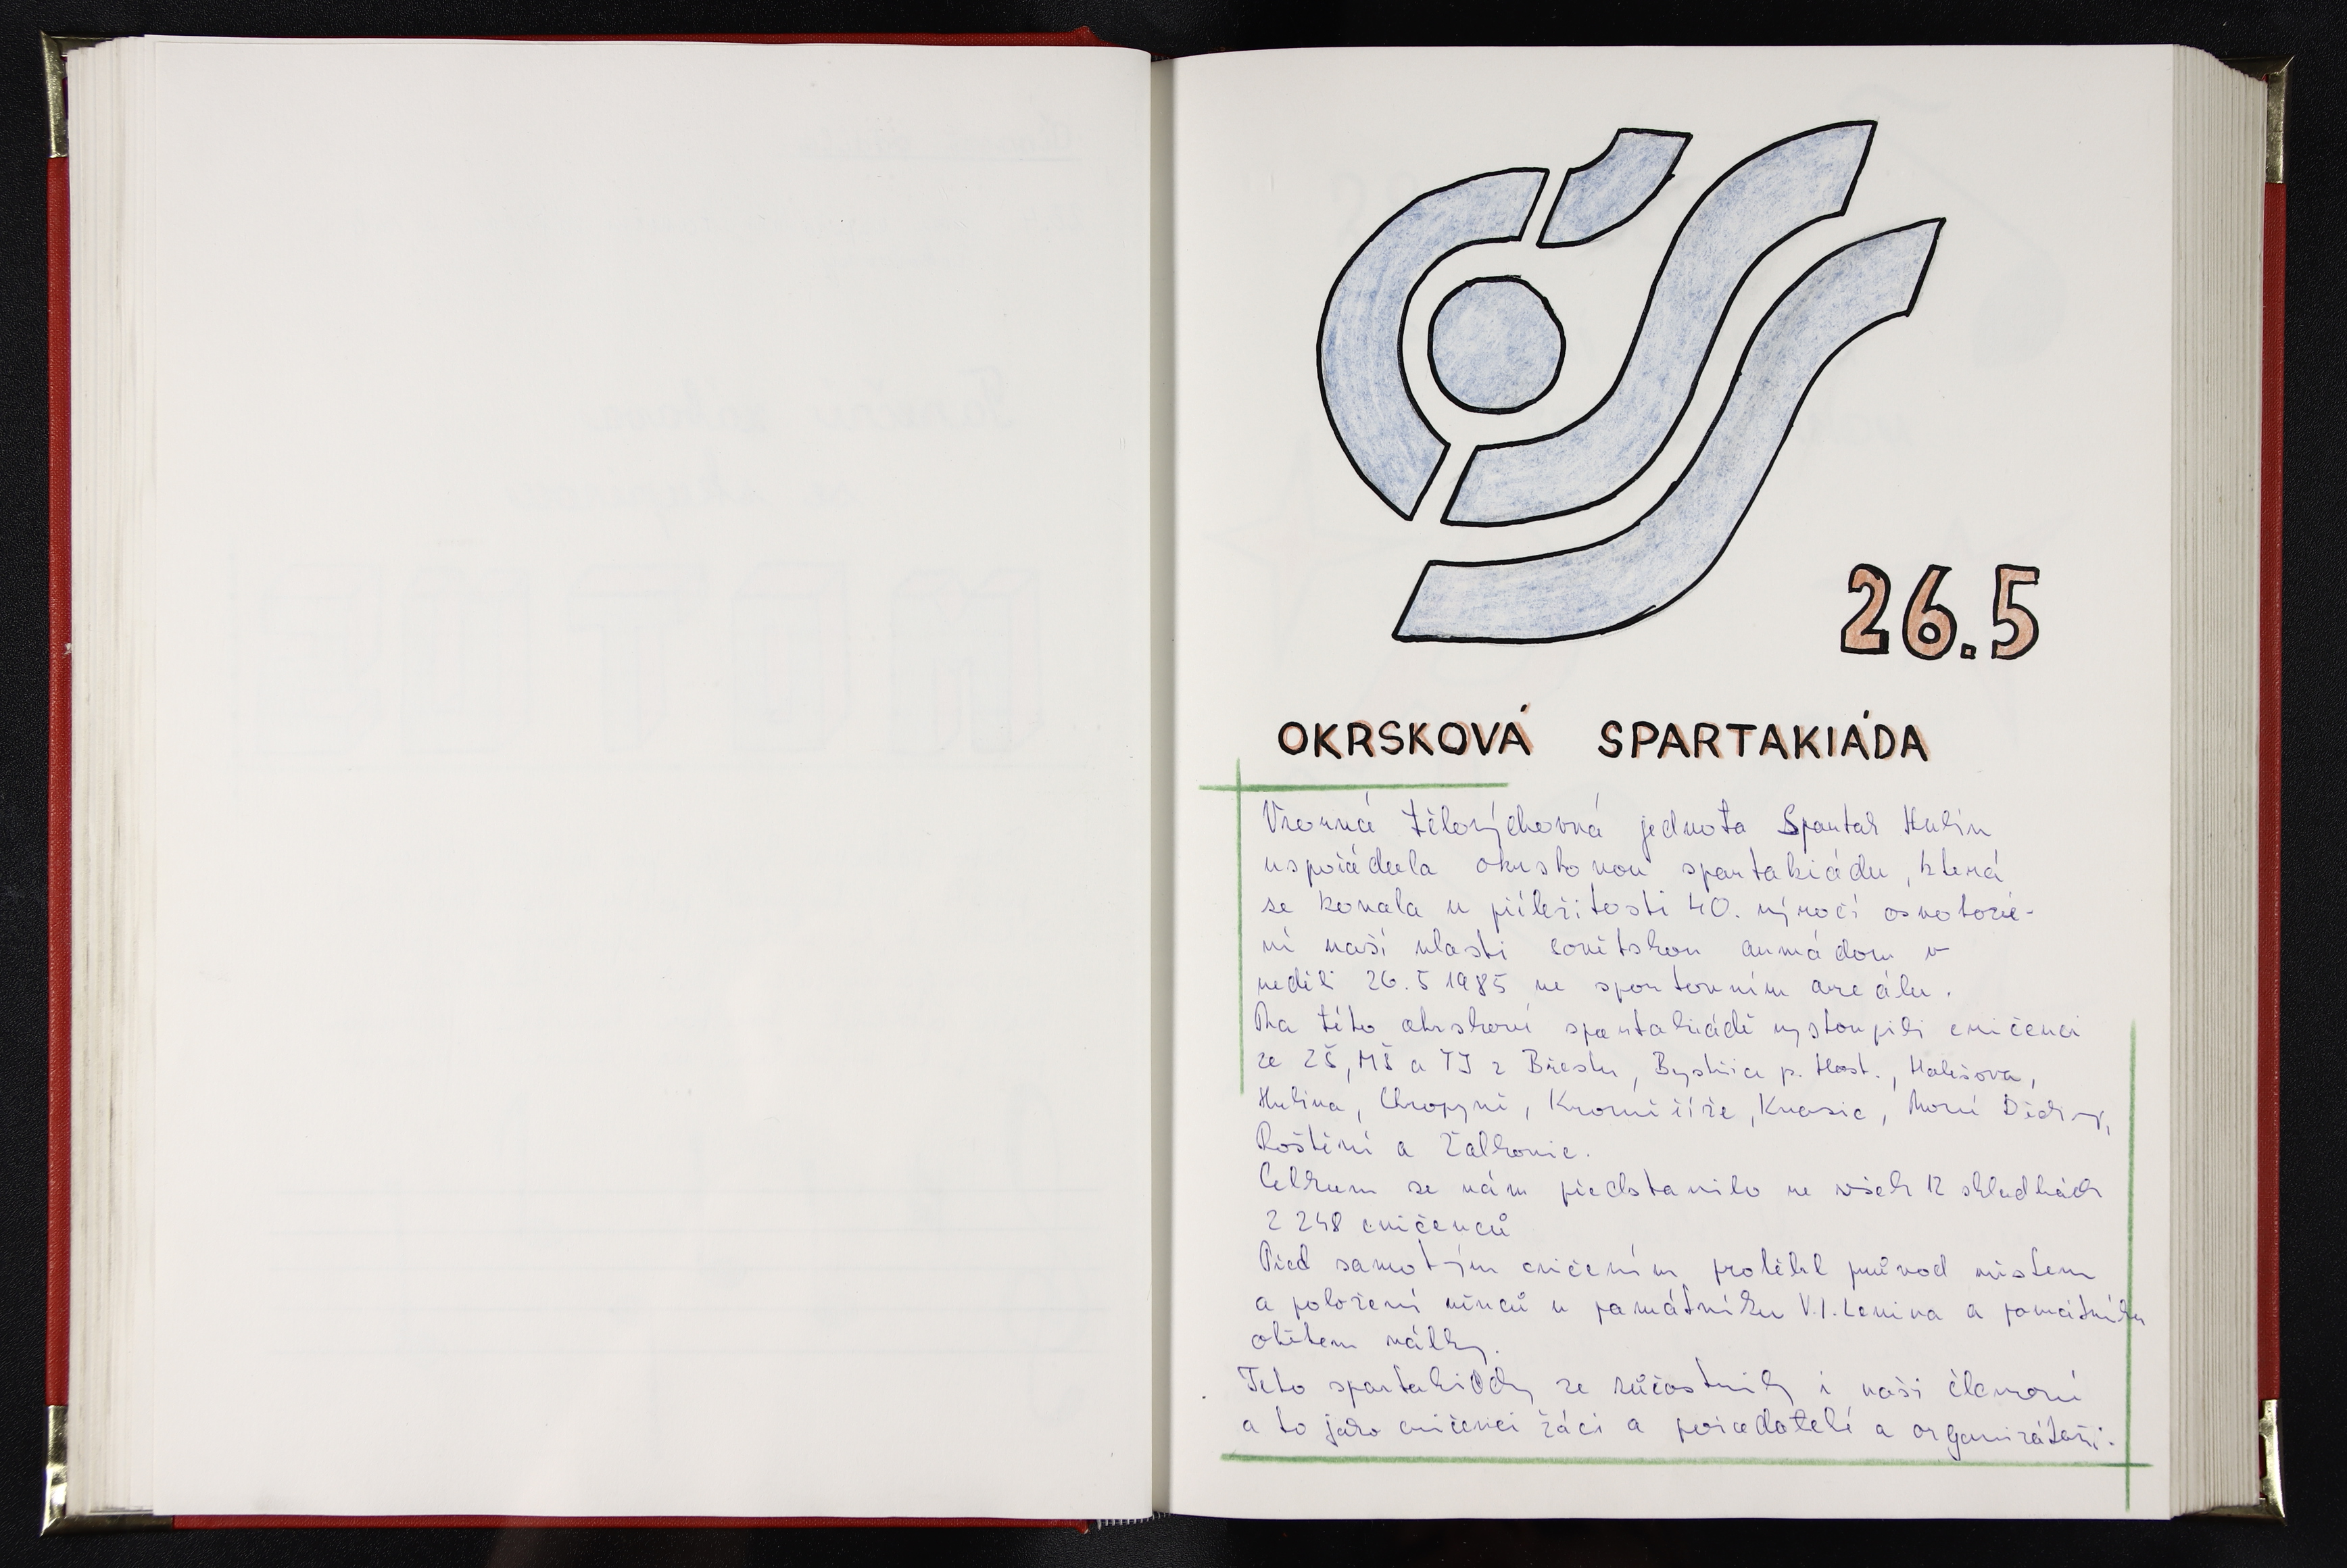 26.5
OKRSKOVÁ SPARTAKIÁDA
Vzorná tělovýchovná jednota Spartak Hulín
uspořádala okrskovou spartakiádu, která
se konala u příležitosti 40. výročí osvoboze-
ní naší vlasti sovětskou armádou v
neděli 26.5 1985 ve sportovním areálu.
Na této okrskové spartakiádě vystoupili cvičenci
ze ZŠ, MŠ a TJ z Břestu, Bystřice p. Host., Holešova,
Hulína, Chropyně, Kroměříže, Kvasic, Nové Dědiny,
Roštění a Žalkovic.
Celkem se nám představilo ve všech 12 skladbách
2 248 cvičenců
Před samotným cvičením proběhl průvod městem
a položení věnců u památníku V.I. Lenina a pomátníku
obětem války.
Teto spartakiády se zúčastnily i naši členové
a to jako cvičenci žáci a pořadatelé a organizátoři.